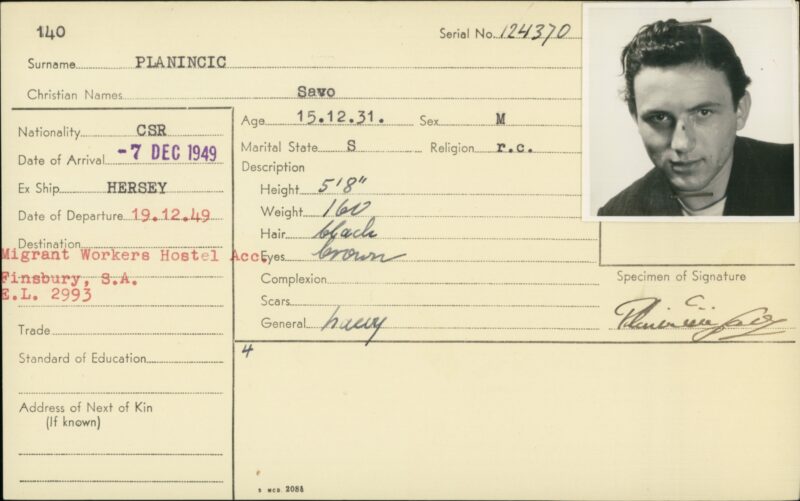 140
Serial No. 124370
Surname PLANINCIC
Christian Names Savo
Nationality CSR
Date of Arrival -7 DEC 1949
Ex Ship HERSEY
Date of Departure 19.12.49
Destination
Migrant Workers Hostel Acc,
Finsbury, S.A.
E.L. 2993
Trade
Standard of Education
Address of Next of Kin
(If known)
Age 15.12.31. Sex M
Marital State S Religion r.c.
Description
Height 5'8"
Weight 160
Hair black
Eyes brown
Complexion
Scars
General heavy
Specimen of Signature
4